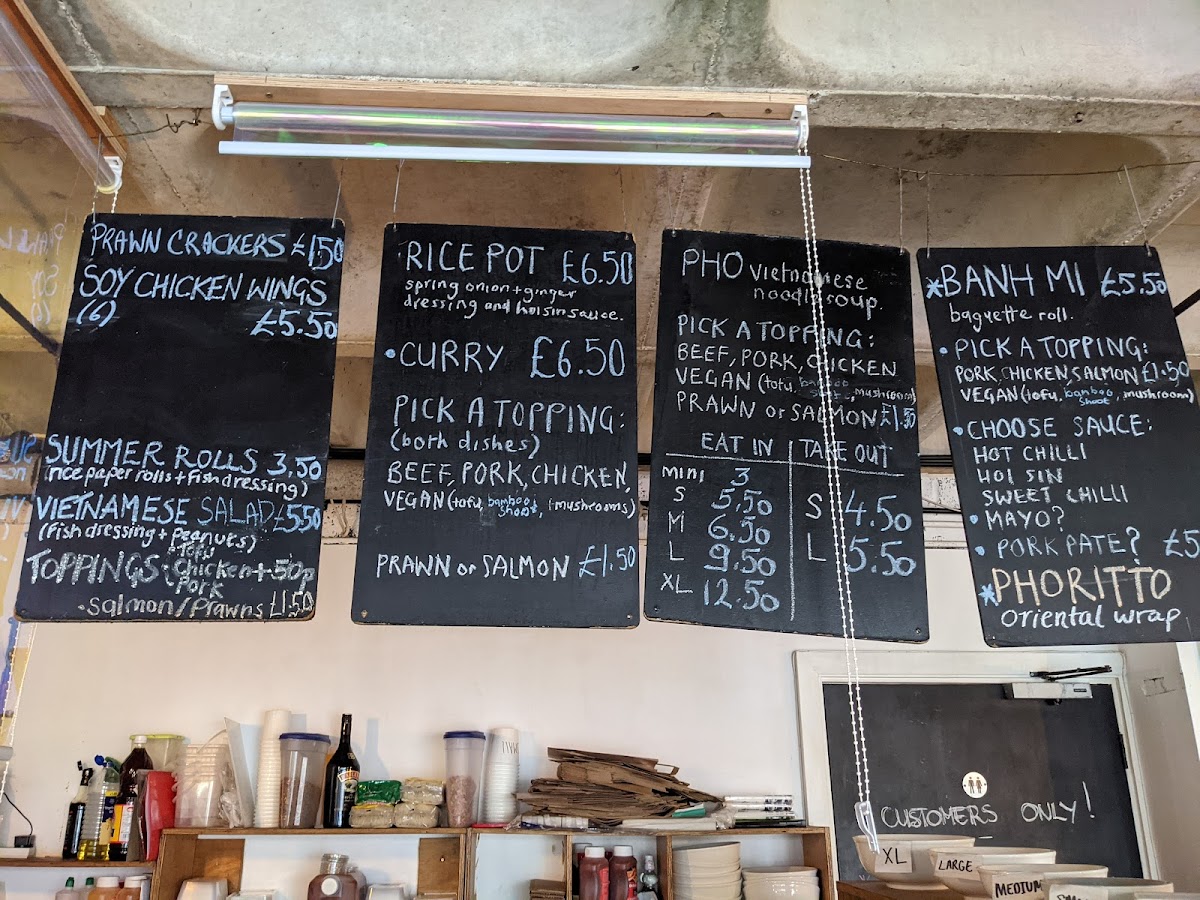 PRAWN CRACKERS £1.50
SOY CHICKEN WINGS
(6) £5.50
SUMMER ROLLS 3.50
(rice paper rolls + fish dressing)
VIETNAMESE SALAD £5.50
(fish dressing + peanuts)
Tofu
TOPPINGS • Chicken +50p
Pork
• Salmon/Prawns £1.50
RICE POT £6.50
spring onion + ginger
dressing and hoisin sauce.
• CURRY £6.50
PICK A TOPPING:
(both dishes)
BEEF, PORK, CHICKEN,
VEGAN (tofu, bamboo shoot, + mushrooms)
PRAWN or SALMON £1.50
PHO vietnamese
noodle soup.
PICK A TOPPING:
BEEF, PORK, CHICKEN
VEGAN (tofu, bamboo shoot, mushroom)
PRAWN or SALMON £1.50
EAT IN TAKE OUT
MINI 3
S 5.50
M 6.50
L 9.50
XL 12.50
S 4.50
L 5.50
*BANH MI £5.50
baguette roll.
• PICK A TOPPING:
PORK, CHICKEN SALMON £1.50
VEGAN (tofu, bamboo shoot, mushroom)
• CHOOSE SAUCE:
HOT CHILLI
HOI SIN
SWEET CHILLI
• MAYO?
• PORK PATE? £5
*PHORITTO
oriental wrap
CUSTOMERS ONLY!
XL
LARGE
MEDIUM